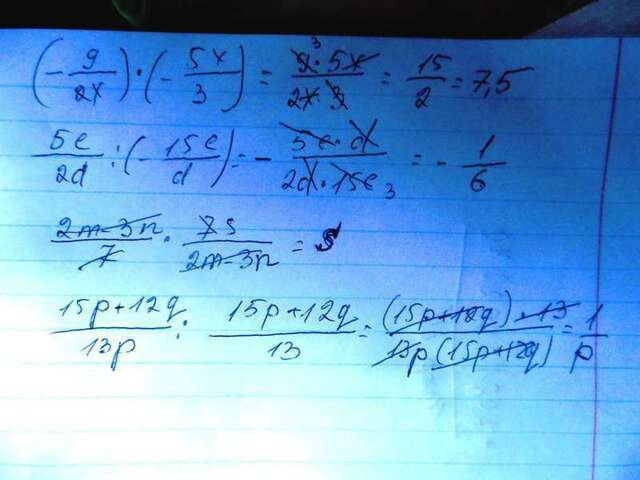 (-9/2x)·(-5x/3) = 9³·5x/2x·3 = 15/2 = 7,5
5c/2d : (-15c/d) = - 5c·d/2d·15c 3 = - 1/6
2m-3n/7 · 7s/2m-3n = s
15p+12q/13p : 15p+12q/13 = (15p+12q)·13/13p(15p+12q) = 1/p